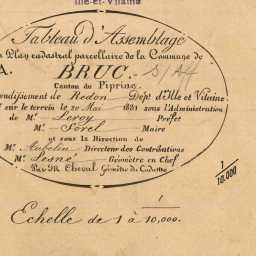 Ille-et-Vilaine
Tableau d'Assemblage
Plan cadastral parcellaire de la Commune de
BRUC. S/Aff
Canton du Pipriac
ondissement de Redon Dépt d'Ille et Vilaine
sur le terrein le 20 Mai 1831 sous l'Administration
de Mr. Leroy Préfet
Mr. Sorel Maire
et sous la Direction de
Mr. Aubelin Directeur des Contributions
Mr. Lesné Géomètre en Chef
Par M. Cheval Géomètre du Cadastre
1/10,000
Echelle de 1 à 1/10,000.